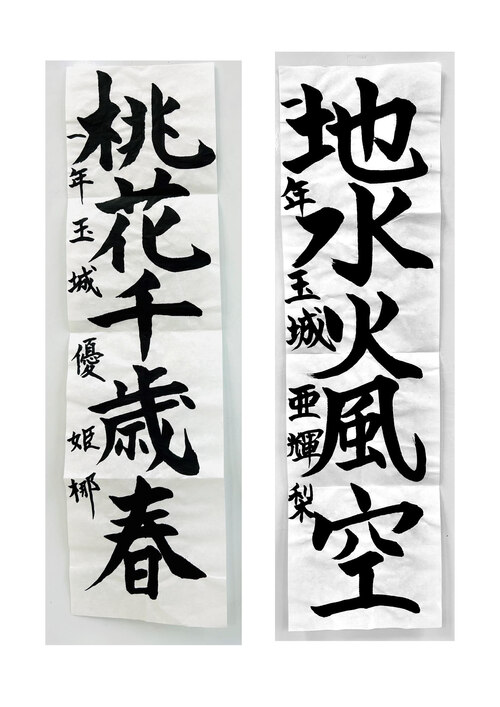 地水火風空
一年 玉城 亜輝梨
桃花千歳春
一年 玉城 優姫梛